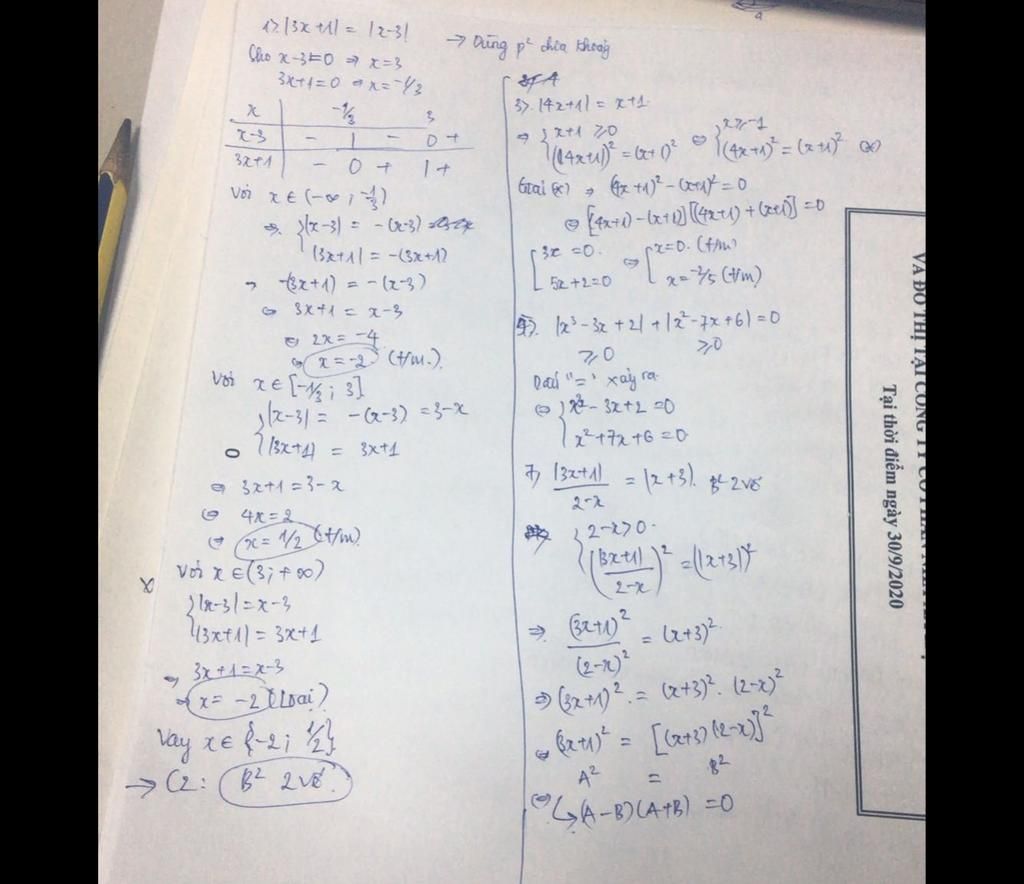 1) |3x+1| = |x-3|
→ Dùng p² chia khoảng
Cho x-3=0 ⇒ x=3
3x+1=0 ⇒ x=-1/3
x -1/3 3
x-3 - | - 0 +
3x+1 - 0 + | +
Với x ∈ (-∞; -1/3)
⇒ { |x-3| = -(x-3)
|3x+1| = -(3x+1)
→ -(3x+1) = -(x-3)
⇔ 3x+1 = x-3
⇔ 2x = -4
⇔ x = -2 (t/m.)
Với x ∈ [-1/3; 3]
{ |x-3| = -(x-3) = 3-x
|3x+1| = 3x+1
⇔ 3x+1 = 3-x
⇔ 4x = 2
⇔ x = 1/2 (t/m)
Với x ∈ (3; +∞)
{ |x-3| = x-3
|3x+1| = 3x+1
→ 3x+1 = x-3
→ x = -2 (Loại)
Vậy x ∈ {-2; 1/2}
→ C2: B² 2 vế
3). |4x+1| = x+1
⇒ { x+1 ≥ 0
(|4x+1|)² = (x+1)² ⇔ { x ≥ -1
(4x+1)² = (x+1)² (*)
Giải (*) ⇒ (4x+1)² - (x+1)² = 0
⇔ [(4x+1) - (x+1)][(4x+1) + (x+1)] = 0
[ 3x = 0. ⇔ [ x = 0. (t/m)
5x+2 = 0 x = -2/5 (t/m)
5). |x³ - 3x + 2| + |x² - 7x + 6| = 0
≥ 0 ≥ 0
Dấu "=" xảy ra
⇔ { x³ - 3x + 2 = 0
x² + 7x + 6 = 0
7) |3x+1| / 2-x = |x+3|. B² 2 vế
{ 2-x > 0.
(|3x+1| / 2-x)² = (|x+3|)²
⇒ (3x+1)² / (2-x)² = (x+3)²
⇒ (3x+1)² = (x+3)² . (2-x)²
⇔ (3x+1)² = [(x+3)(2-x)]²
A² = B²
⇔ ↳ (A-B)(A+B) = 0
Tại thời điểm ngày 30/9/2020